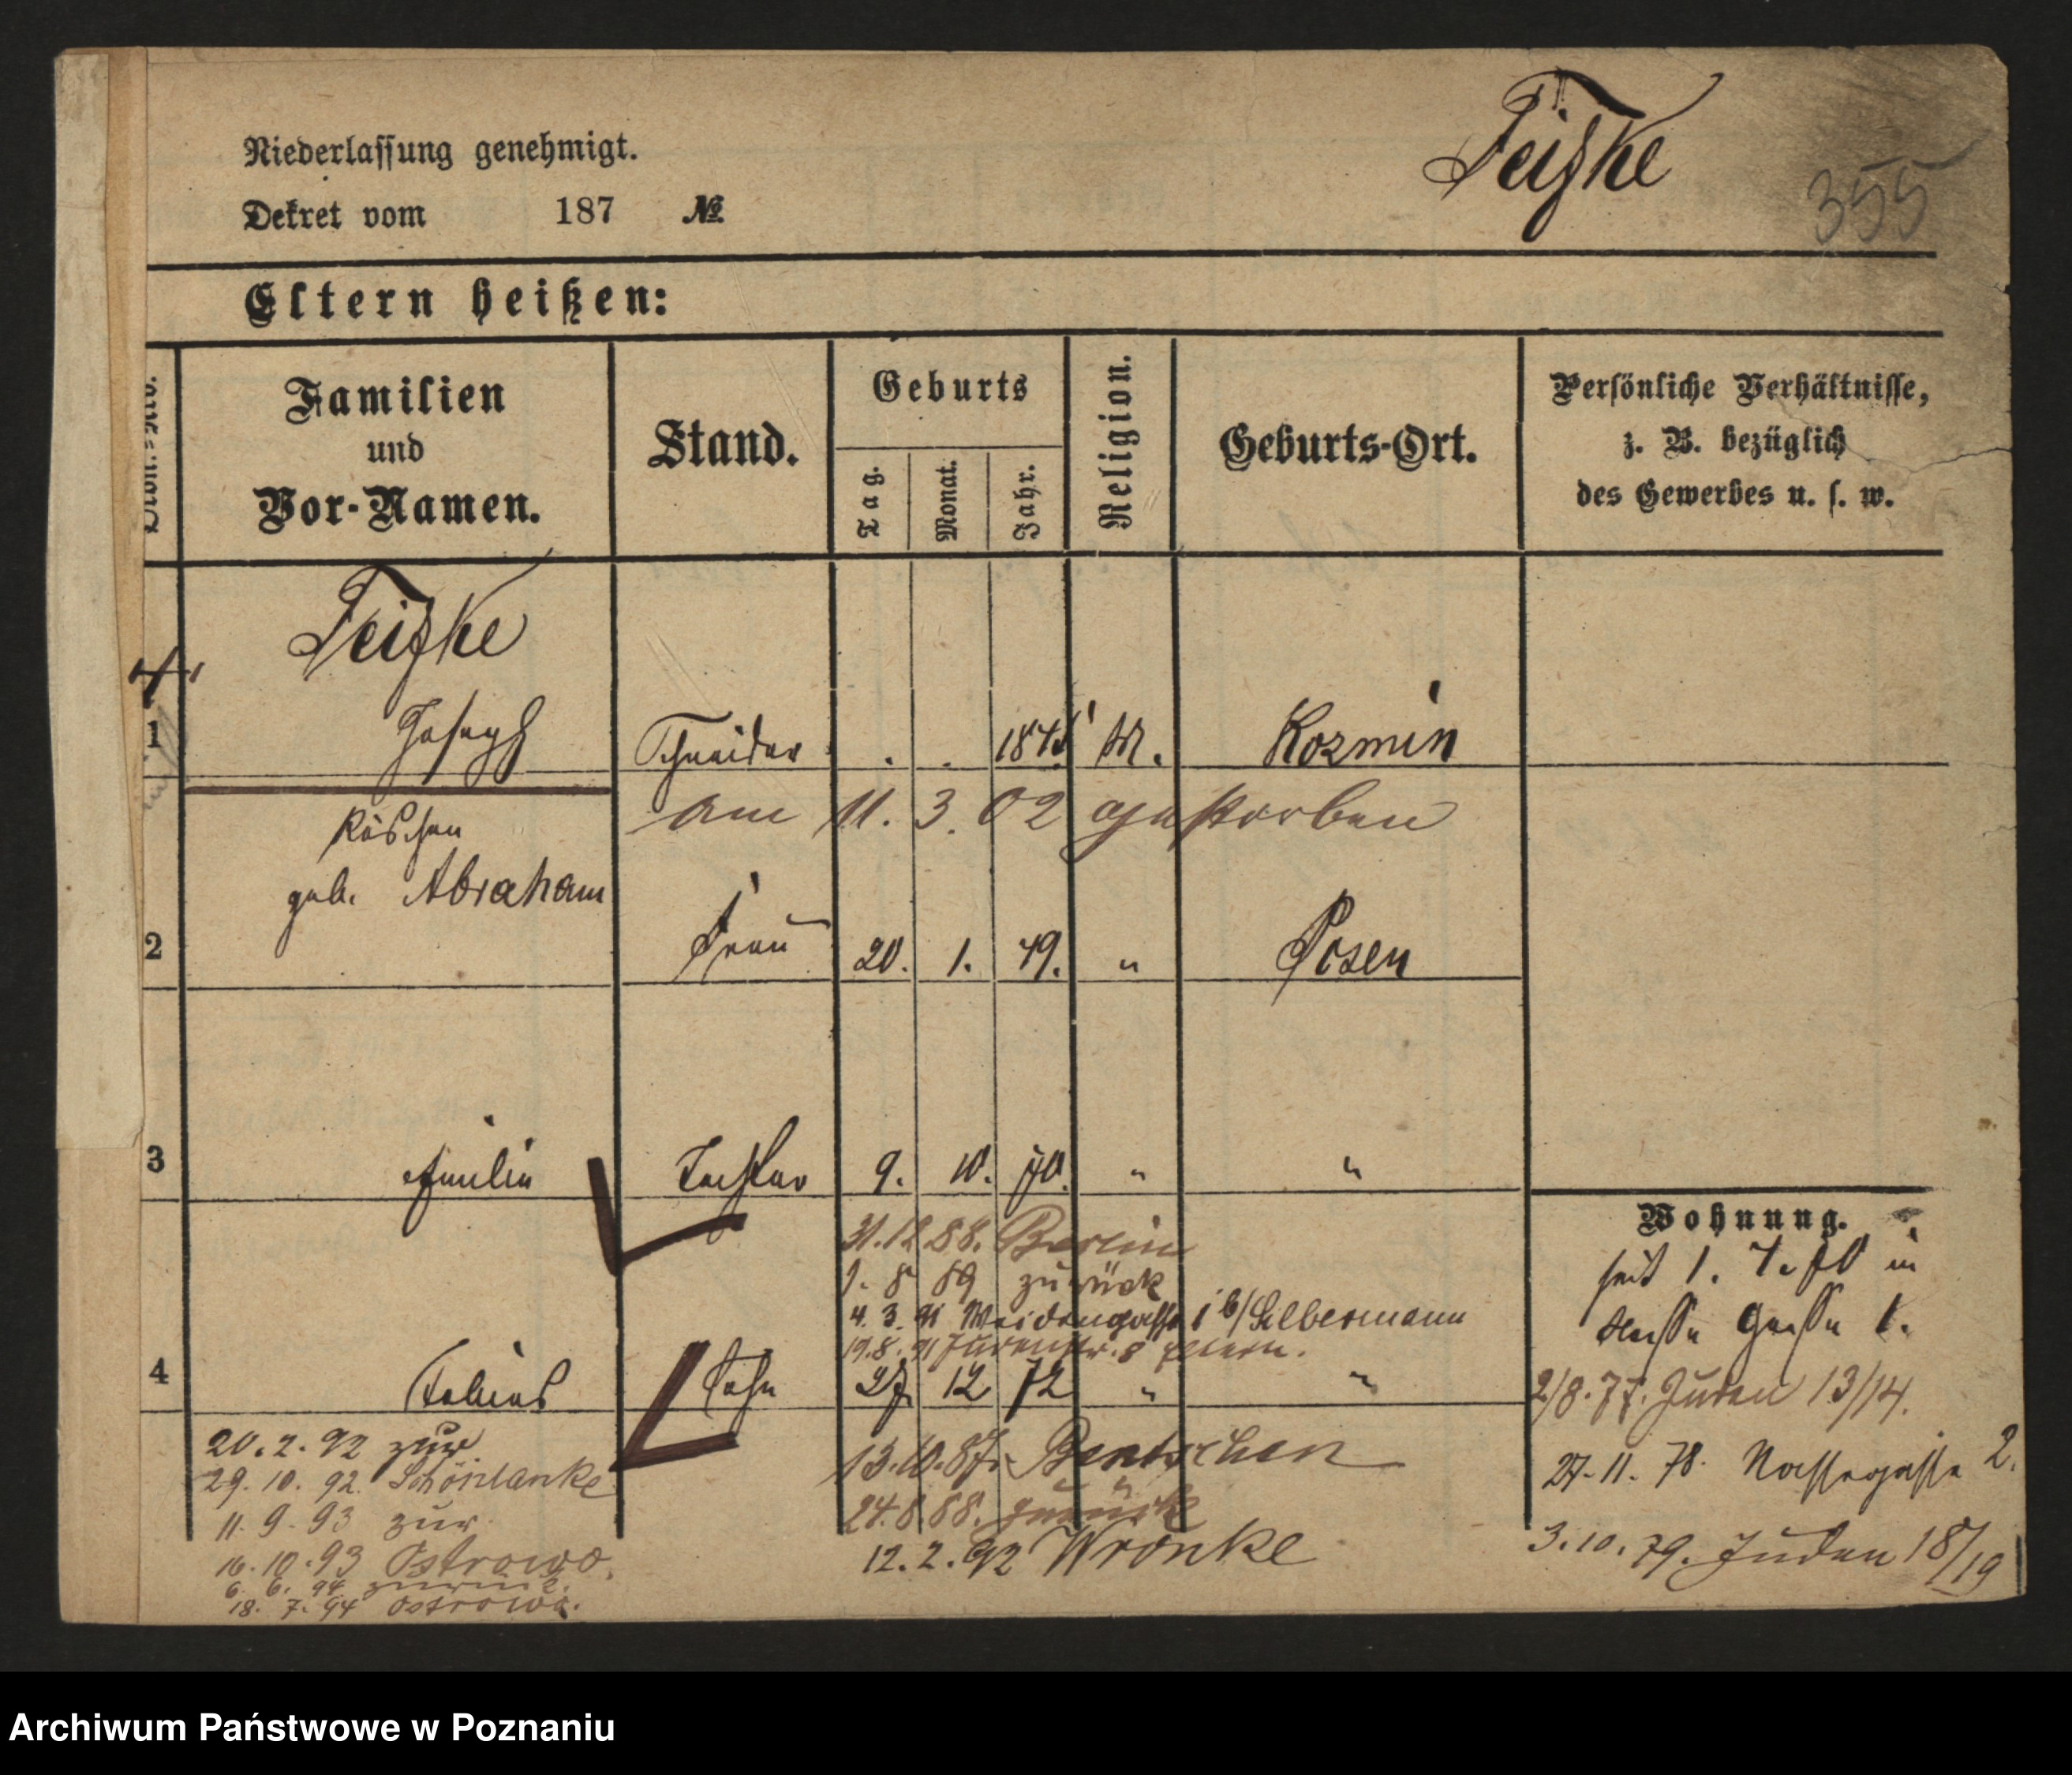 Niederlassung genehmigt.
Dekret vom 187 №
Teißke
355
Eltern heißen:
Familien
und
Vor-Namen.
Stand.
Geburts
Tag.
Monat.
Jahr.
Religion.
Geburts-Ort.
Persönliche Verhältnisse,
z. B. bezüglich
des Gewerbes u. s. w.
Teißke
1 Joseph Schneider . . 1845 M. Kozmin
am 11. 3. 02 gestorben
Röschen
geb. Abraham
2 Frau 20. 1. 49. " Posen
3 Emilie Tochter 9. 10. 70. " "
31.12.88. Berlin
1. 8 89 zurück
4. 3. 91 Weidengasse 1 b/Silbermann
19.8.91 Judenstr. 8 Eltern.
4 Tobias Sohn 27. 12 72 " "
13.10.87. Bentschen
24.8.88. zurück
12.2.92 Wronke
20.2.92 zur
29.10.92. Schönlanke
11.9.93 zur
16.10.93 Ostrowo.
6. 6. 94 zurück.
18. 7. 94 Ostrowo.
Wohnung.
seit 1. 7. in
Gasse 1.
2/8.77. Juden 13/14.
27.11.78. Nassegasse 2.
3.10.79. Juden 18/19
Archiwum Państwowe w Poznaniu